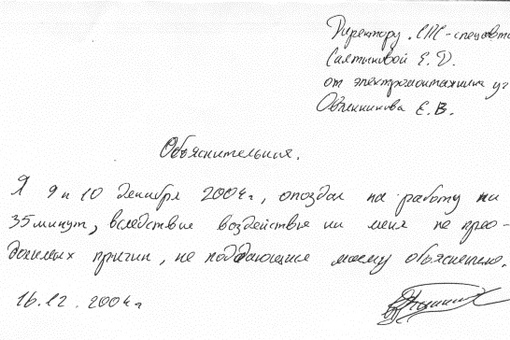 Директору СТС-спецавто
Салтыковой Е. Д.
от электромонтажника уч
Овчинникова Е. В.
Объяснительная.
Я 9 и 10 декабря 2004г, опоздал на работу на
35 минут, вследствие воздействия на меня не прео-
далимых причин, не поддающиеся моему объяснению.
16.12. 2004г